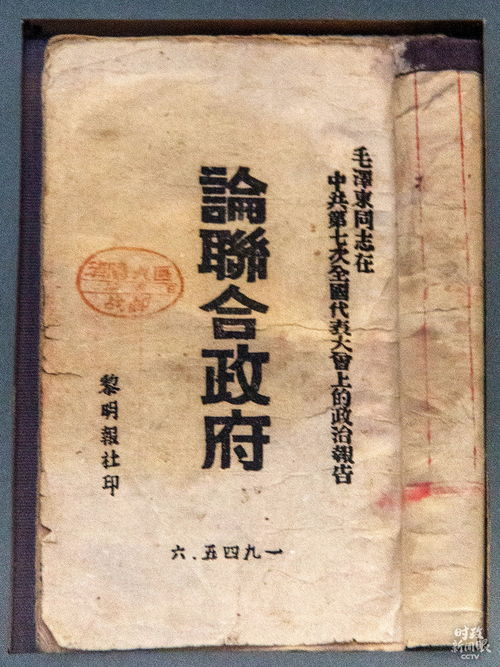 毛澤東同志在
中共第七次全國代表大會上的政治報告
論聯合政府
黎明報社印
一九四五．六
时政
新闻眼
CCTV